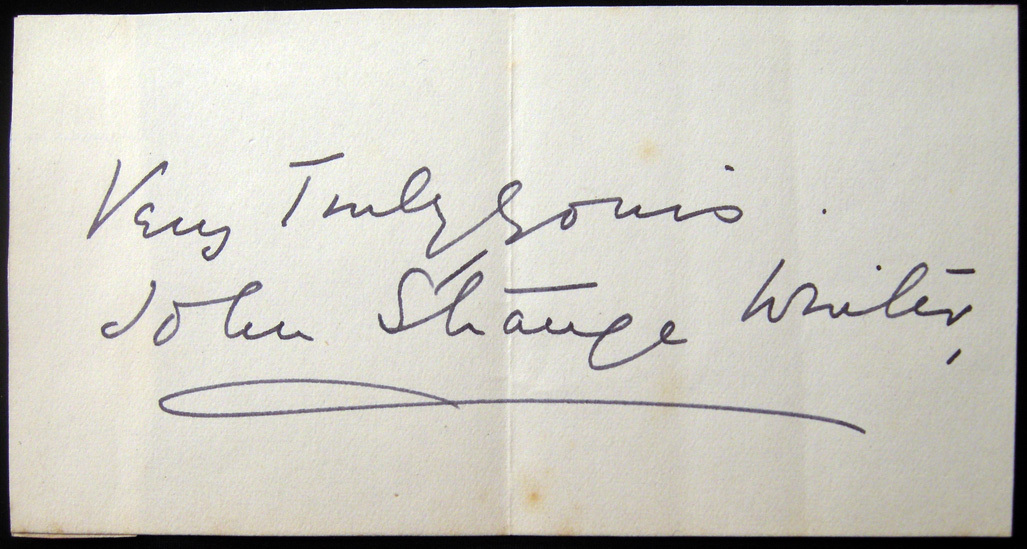 Very Truly yours.
John Strange Winter,